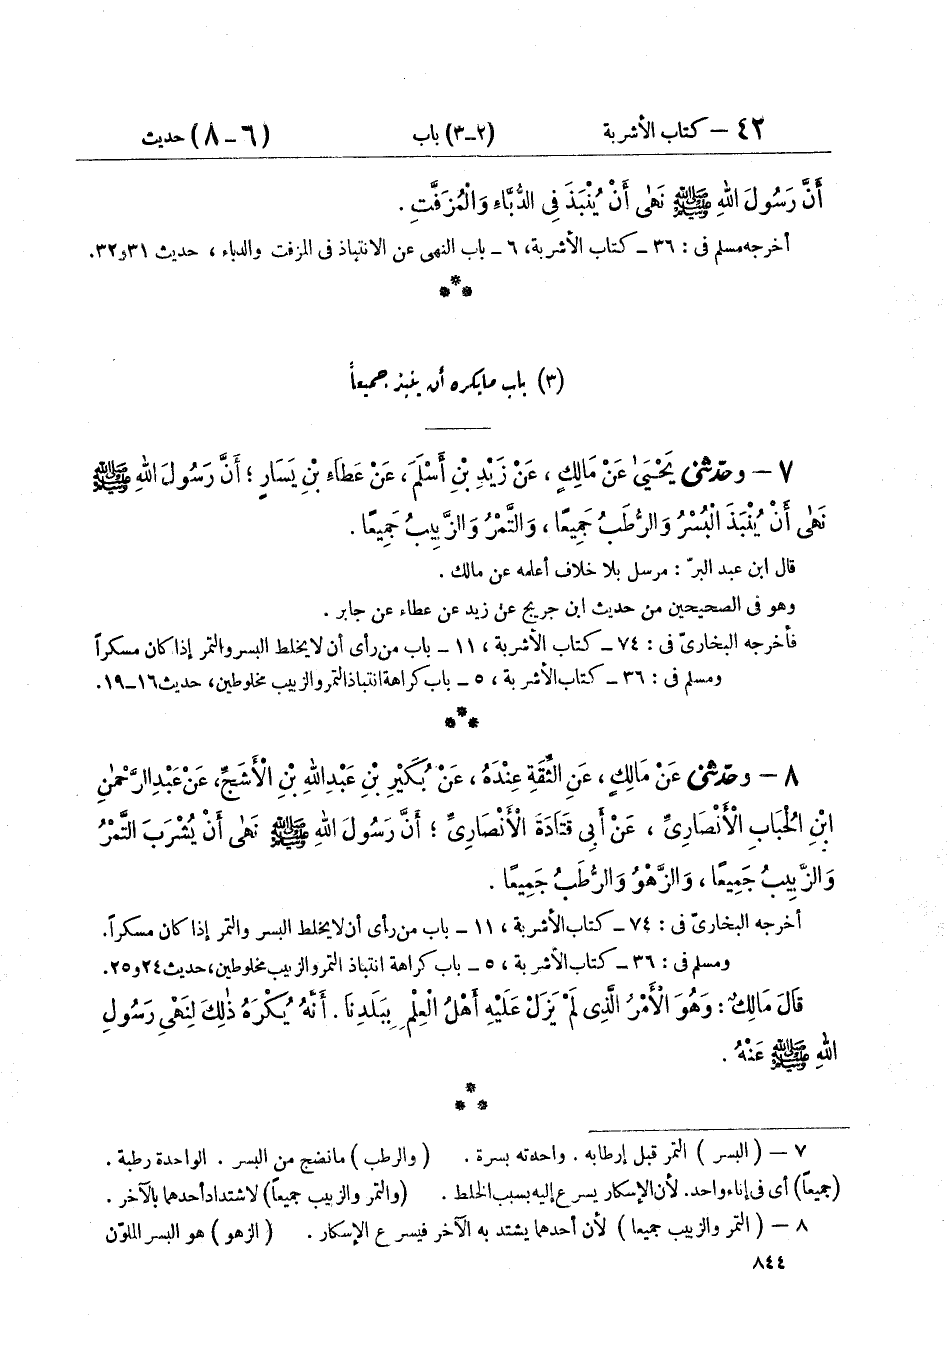 ٤٢ – كتاب الأشربة (٢-٣) باب (٦-٨) حديث
أَنَّ رَسُولَ اللهِ ﷺ نَهَى أَنْ يُنْبَذَ فِى الدُّبَّاءِ وَالْمُزَفَّتِ .
أخرجه مسلم فى : ٣٦ – كتاب الأشربة، ٦ – باب النهى عن الانتباذ فى المزفت والدباء ، حديث ٣١ و ٣٢.
***
(٣) باب مايكره أن ينبذ جميعاً
٧ – وحدّثنى يَحْيَىٰ عَنْ مَالِكٍ ، عَنْ زَيْدِ بْنِ أَسْلَمَ ، عَنْ عَطَاءِ بْنِ يَسَارٍ ؛ أَنَّ رَسُولَ اللهِ ﷺ
نَهَى أَنْ يُنْبَذَ الْبُسْرُ وَالرُّطَبُ جَمِيعًا ، وَالتَّمْرُ وَالزَّبِيبُ جَمِيعًا .
قال ابن عبد البرّ : مرسل بلا خلاف أعلمه عن مالك .
وهو فى الصحيحين من حديث ابن جريج عن زيد عن عطاء عن جابر .
فأخرجه البخارىّ فى : ٧٤ – كتاب الأشربة ، ١١ – باب من رأى أن لا يخلط البسر والتمر إذا كان مسكراً
ومسلم فى : ٣٦ – كتاب الأشربة ، ٥ – باب كراهة انتباذ التمر والزبيب مخلوطين، حديث ١٦-١٩.
***
٨ – وحدّثنى عَنْ مَالِكٍ ، عَنِ الثِّقَةِ عِنْدَهُ ، عَنْ بُكَيْرِ بْنِ عَبْدِ اللهِ بْنِ الْأَشَجِّ، عَنْ عَبْدِ الرَّحْمٰنِ
ابْنِ الْحُبَابِ الْأَنْصَارِىِّ ، عَنْ أَبِى قَتَادَةَ الْأَنْصَارِىِّ ؛ أَنَّ رَسُولَ اللهِ ﷺ نَهَى أَنْ يُشْرَبَ التَّمْرُ
وَالزَّبِيبُ جَمِيعًا ، وَالزَّهْوُ وَالرُّطَبُ جَمِيعًا .
أخرجه البخارىّ فى : ٧٤ – كتاب الأشربة ، ١١ – باب من رأى أن لا يخلط البسر والتمر إذا كان مسكراً.
ومسلم فى : ٣٦ – كتاب الأشربة ، ٥ – باب كراهة انتباذ التمر والزبيب مخلوطين، حديث ٢٤ و ٢٥.
قَالَ مَالِكٌ : وَهُوَ الْأَمْرُ الَّذِى لَمْ يَزَلْ عَلَيْهِ أَهْلُ الْعِلْمِ بِبَلَدِنَا . أَنَّهُ يُكْرَهُ ذٰلِكَ لِنَهْىِ رَسُولِ
اللهِ ﷺ عَنْهُ .
***
٧ – ( البسر ) التمر قبل إرطابه . واحدته بسرة . ( والرطب ) مانضج من البسر . الواحدة رطبة .
(جميعاً) أى فى إناء واحد. لأن الإسكار يسرع إليه بسبب الخلط . (والتمر والزبيب جميعاً) لاشتداد أحدهما بالآخر .
٨ – ( التمر والزبيب جميعا ) لأن أحدهما يشتد به الآخر فيسرع الإسكار . ( الزهو ) هو البسر الملوّن
٨٤٤